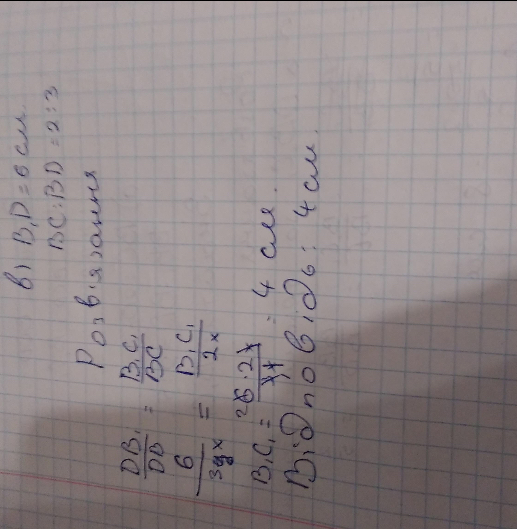 в) B₁D = 6 см.
BC:BD = 2:3
Розв'язання
DB₁/DB = B₁C₁/BC
6/3x = B₁C₁/2x
B₁C₁ = 6·2x/3x = 4 см.
Відповідь: 4 см.